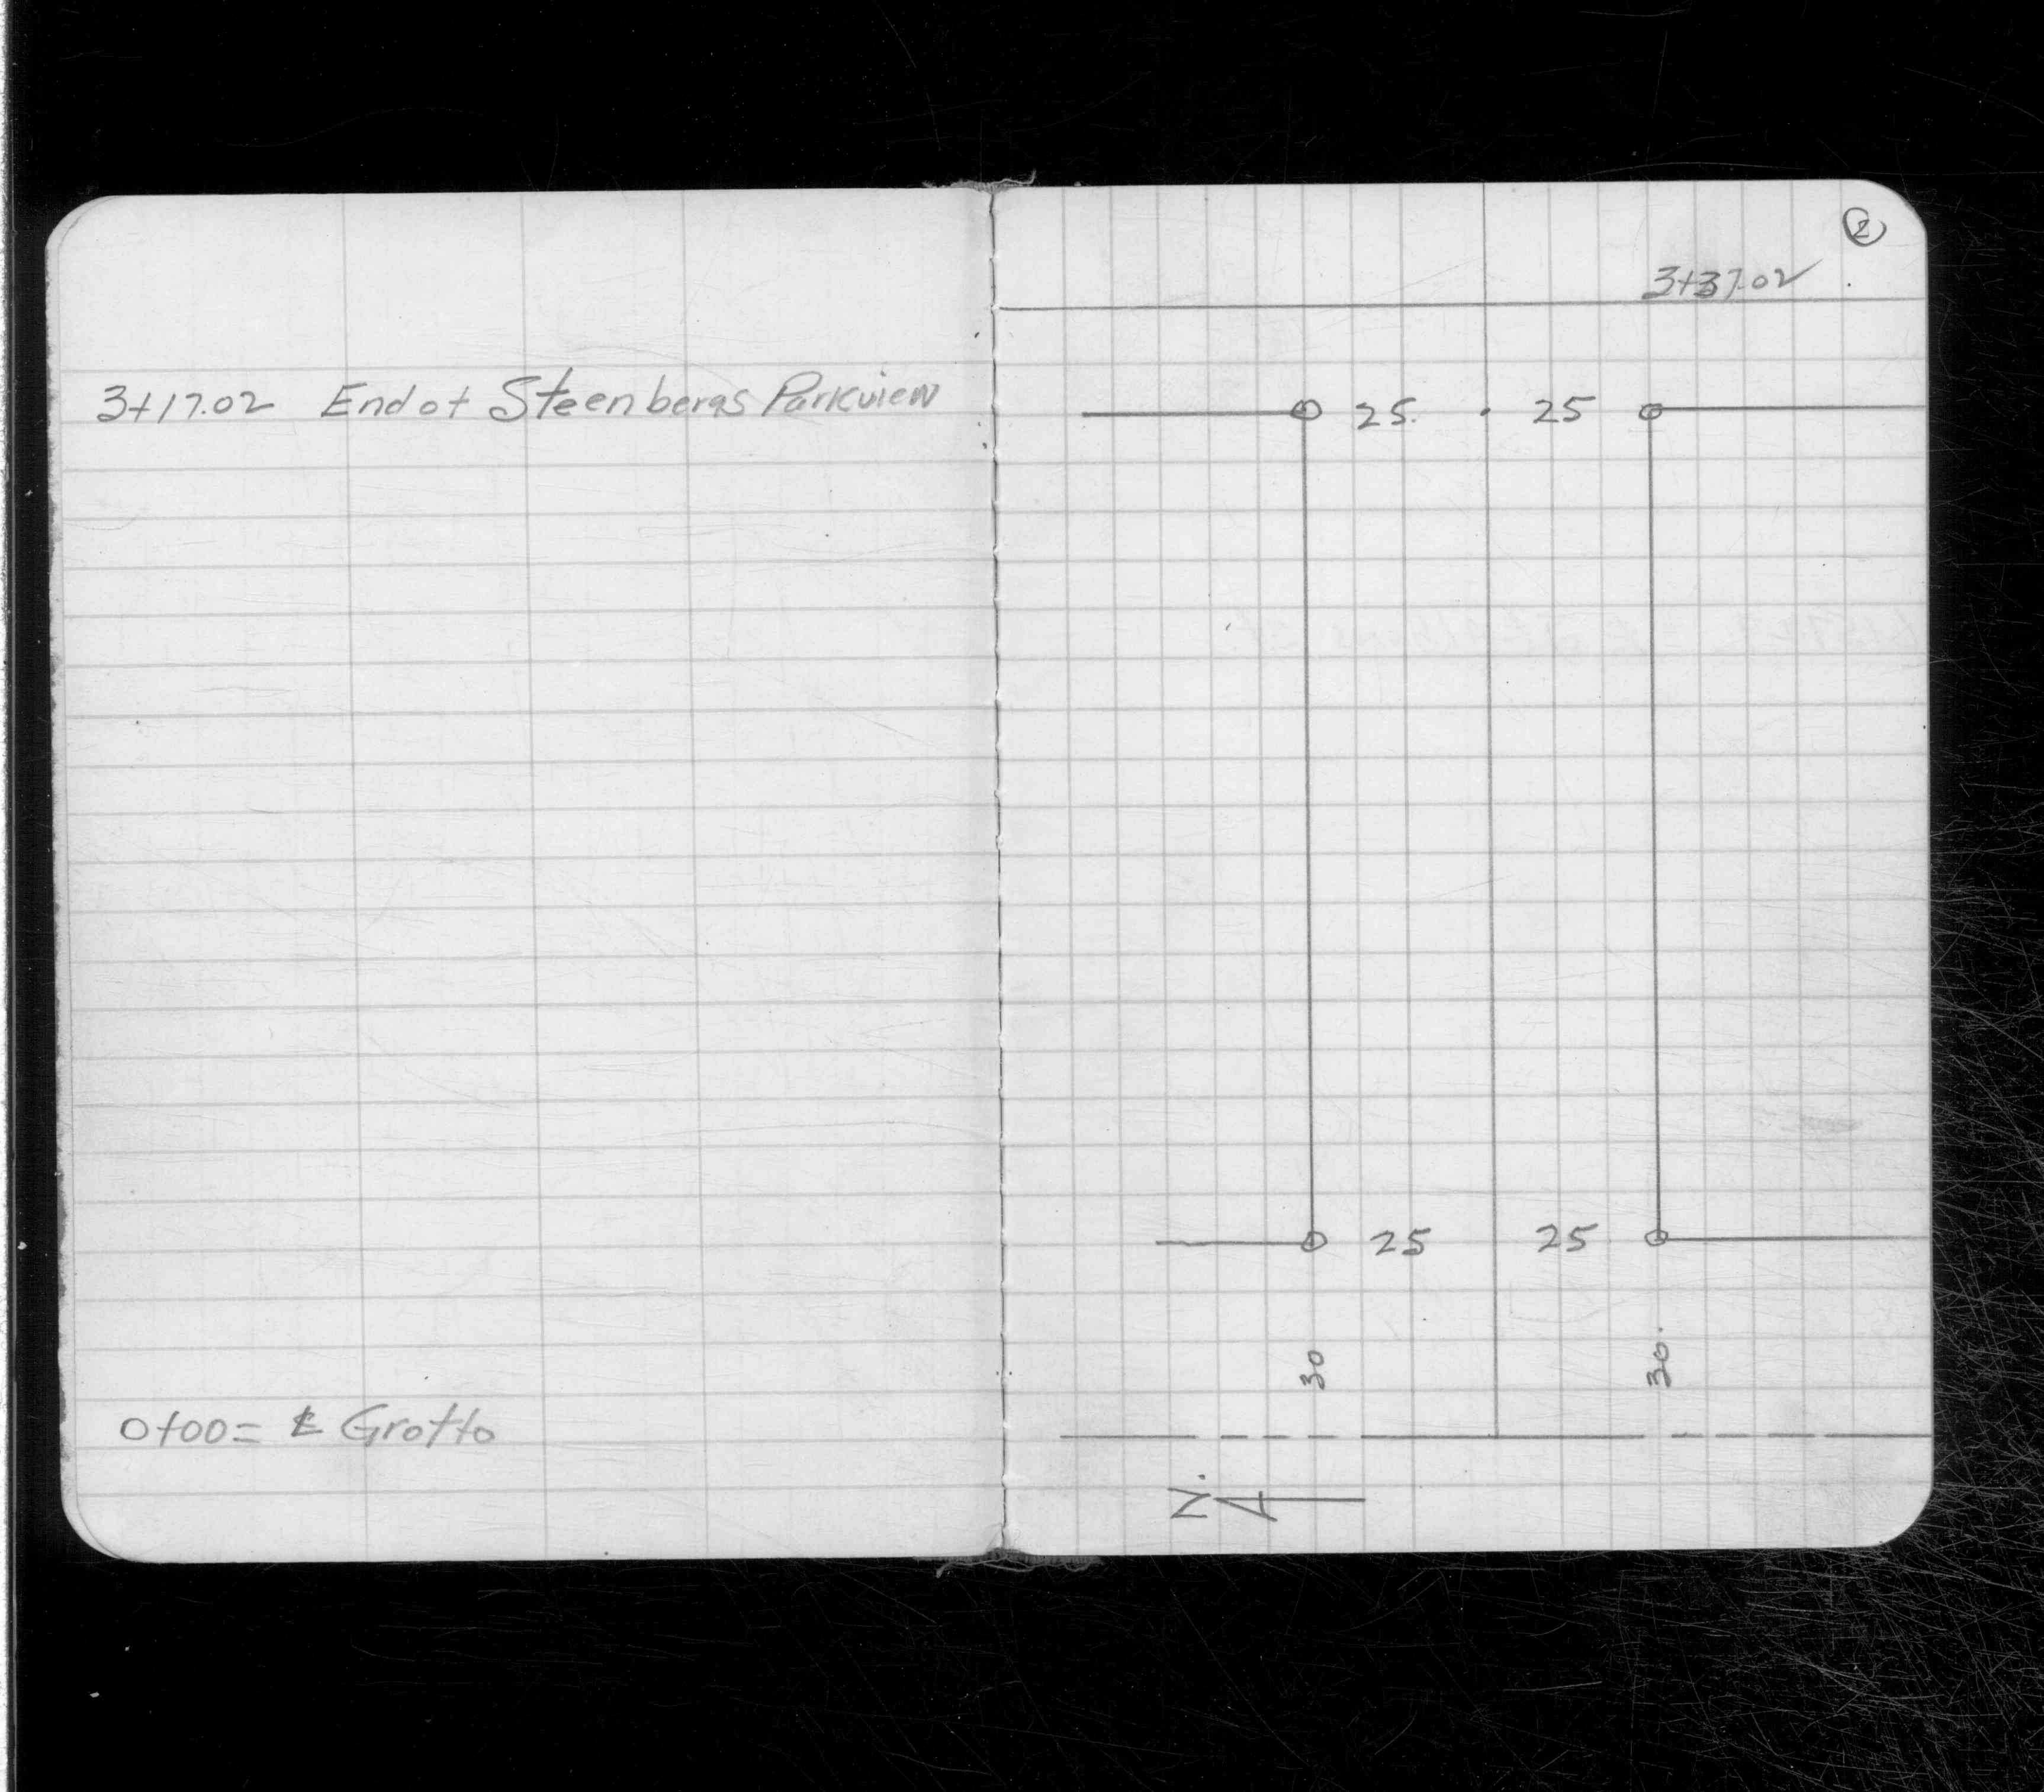 3+17.02 End of Steenbergs Parkview
0+00 = ℄ Grotto
2
3+37.02
25. 25
25 25
30 30.
N.